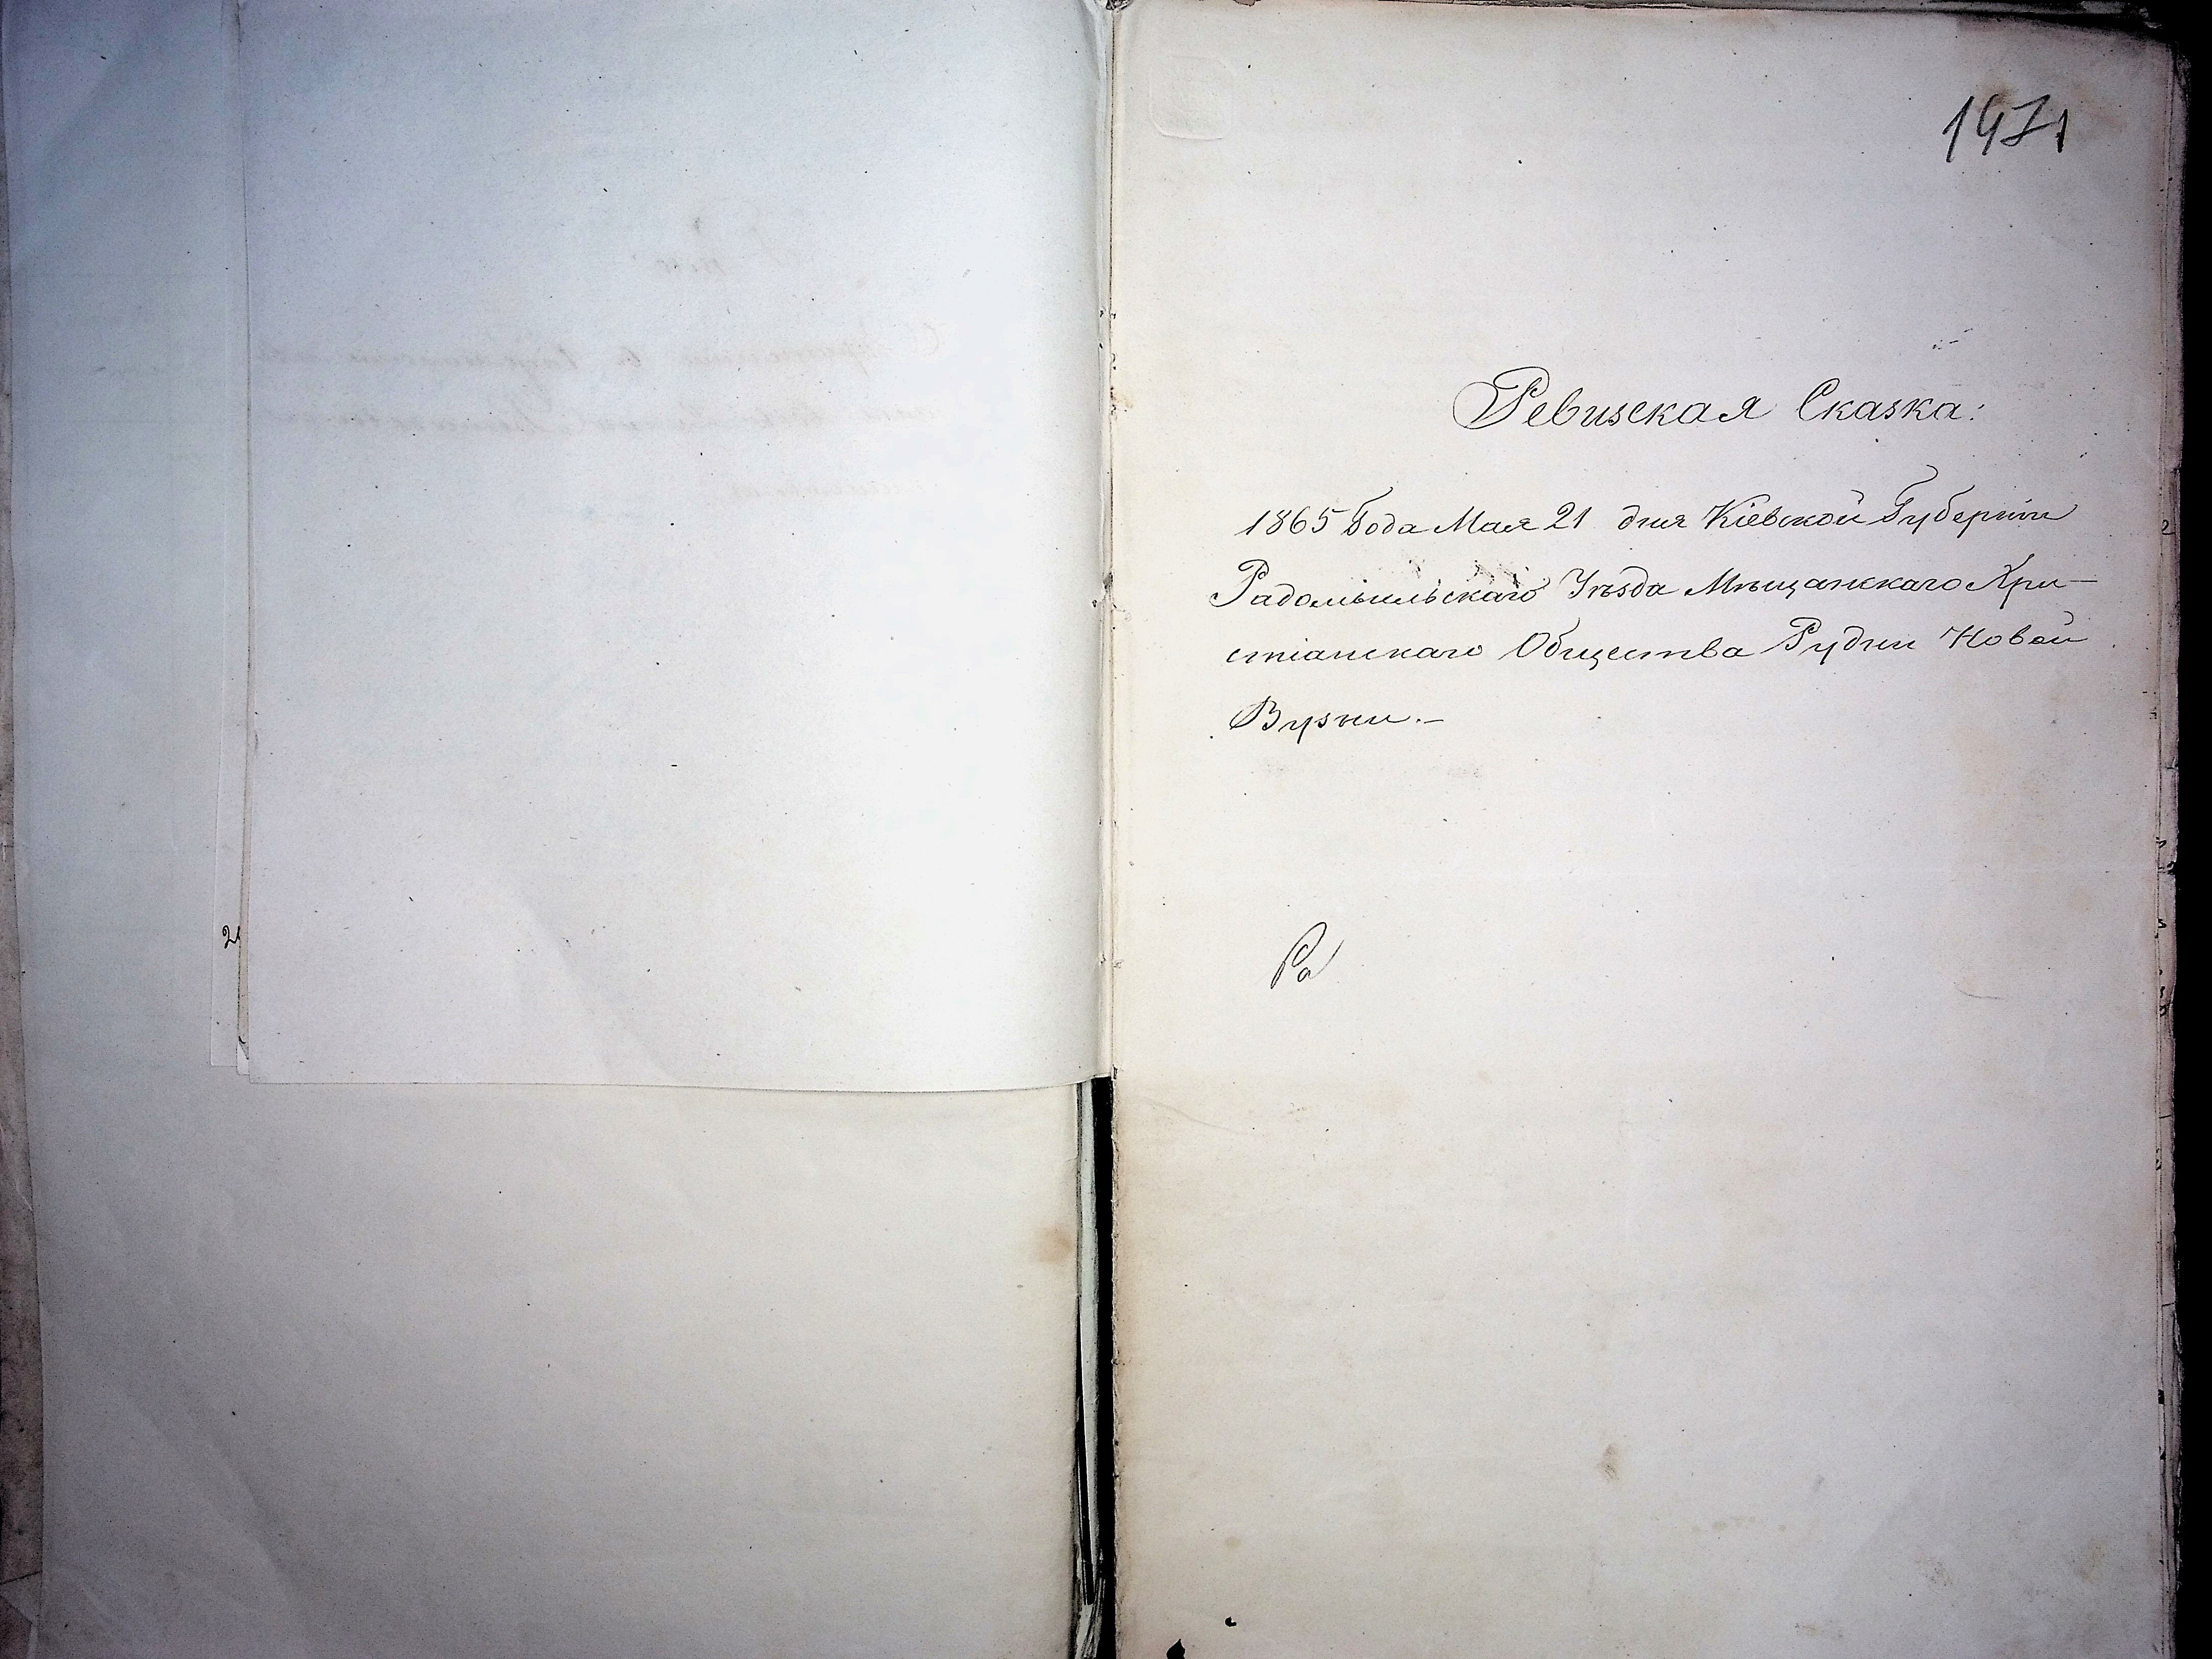 1471
Ревизская Сказка:
1865 Года Мая 21 дня Кіевской Губерніи
Радомысльскаго Уѣзда Мѣщанскаго Хри-
стіанскаго Общества Рудни Новой
Вузни.-
Ра
2